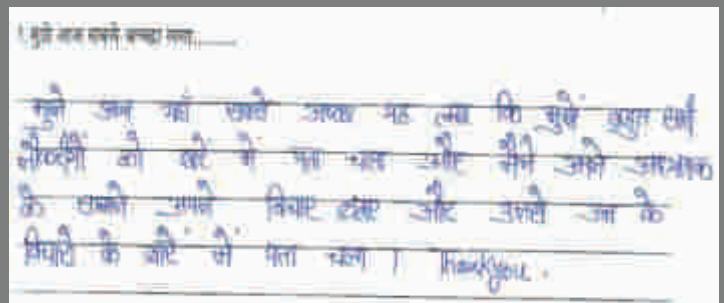 1. मुझे आज सबसे अच्छा लगा......
मुझे आज यहाँ सबसे अच्छा यह लगा कि मुझे बहुत सारे
को बारें में पता चला और मैंने अपने
के सामने अपने विचार रखे और उनसे उन के
विचारो के बारें में पता चला । Thankyou.